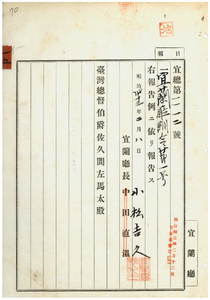 70
日
報
宜總第一一二號
宜蘭廳訓令第一號
右報告例ニ依リ報告ス
明治四十二年二月八日
宜蘭廳長
中田直溫
小松吉久
臺灣總督伯爵佐久間左馬太殿
宜蘭廳